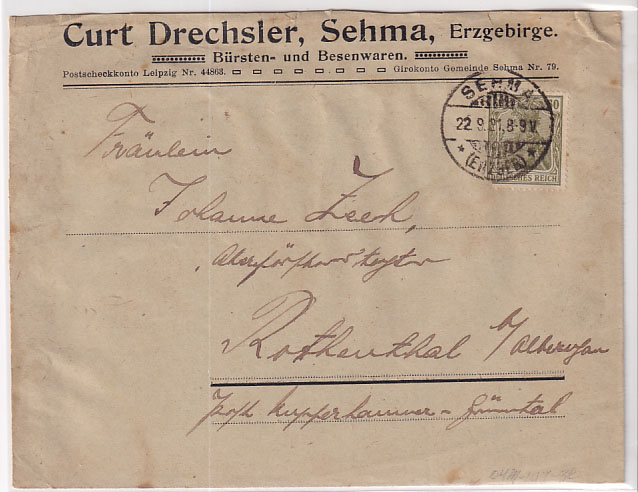 Curt Drechsler, Sehma, Erzgebirge.
Bürsten- und Besenwaren.
Postscheckkonto Leipzig Nr. 44863. Girokonto Gemeinde Sehma Nr. 79.
SEHMA
22.9.21.8-9V.
* (ERZGEB.) *
60
DEUTSCHES REICH
Fräulein
Johanne
Rothenthal b/
Post Kupferhammer-Grünthal